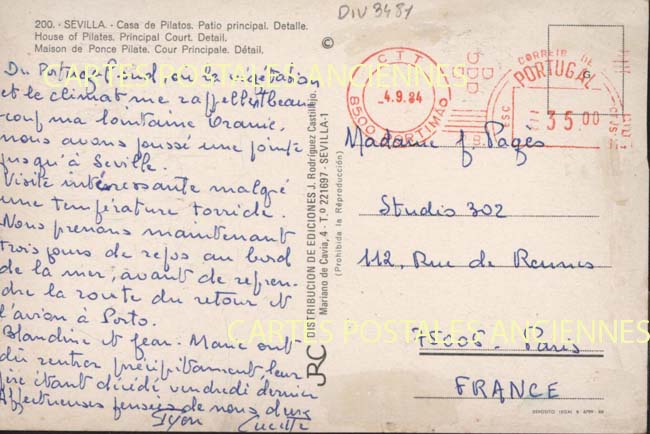 DIV 3481
200. - SEVILLA. - Casa de Pilatos. Patio principal. Detalle.
House of Pilates. Principal Court. Detail.
Maison de Ponce Pilate. Cour Principale. Détail.
©
Du Portugal Sud, où la végétation
et le climat me rappellent beau-
coup ma lointaine Oranie,
nous avons poussé une pointe
jusqu'à Séville.
Visite intéressante malgré
une température torride.
Nous prenons maintenant
trois jours de repos au bord
de la mer, avant de repren-
dre la route du retour et
l'avion à Porto.
Blandine et Jean-Marie ont
dû rentrer précipitamment leur
père étant décédé vendredi dernier
Affectueuses pensées de nous deux
Lucette
JRC
DISTRIBUCION DE EDICIONES J. Rodríguez Castillejo,
Mariano de Cavia, 4 - T.º 221697 - SEVILLA-1
(Prohibida la Réproducción)
CTT
4.9.84
8500 PORTIMÃO
CORREIO DE
PORTUGAL
ESC
35 00
Madame J. Pagès
Studio 302
112, Rue de Rennes
75006 - Paris
FRANCE
CARTES POSTALES ANCIENNES
CARTES POSTALES ANCIENNES